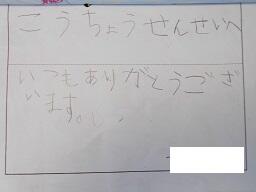 こうちょうせんせいへ
いつもありがとうござ
います。